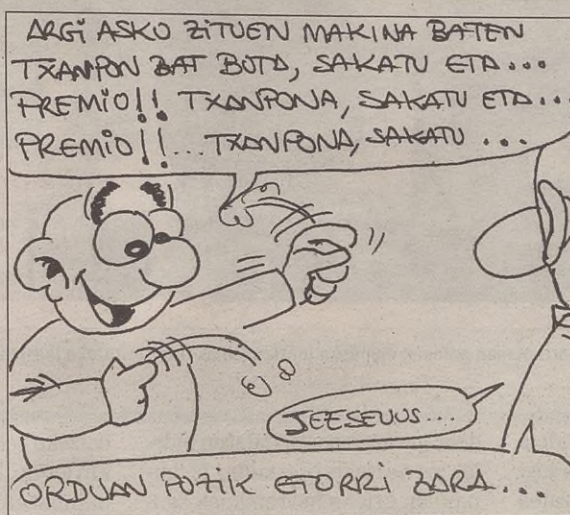 ARGI ASKO ZITUEN MAKINA BATEN
TXANPON BAT BOTA, SAKATU ETA...
PREMIO!! TXANPONA, SAKATU ETA...
PREMIO!!... TXANPONA, SAKATU ...
JEESEUUS...
ORDUAN POZIK ETORRI ZARA...